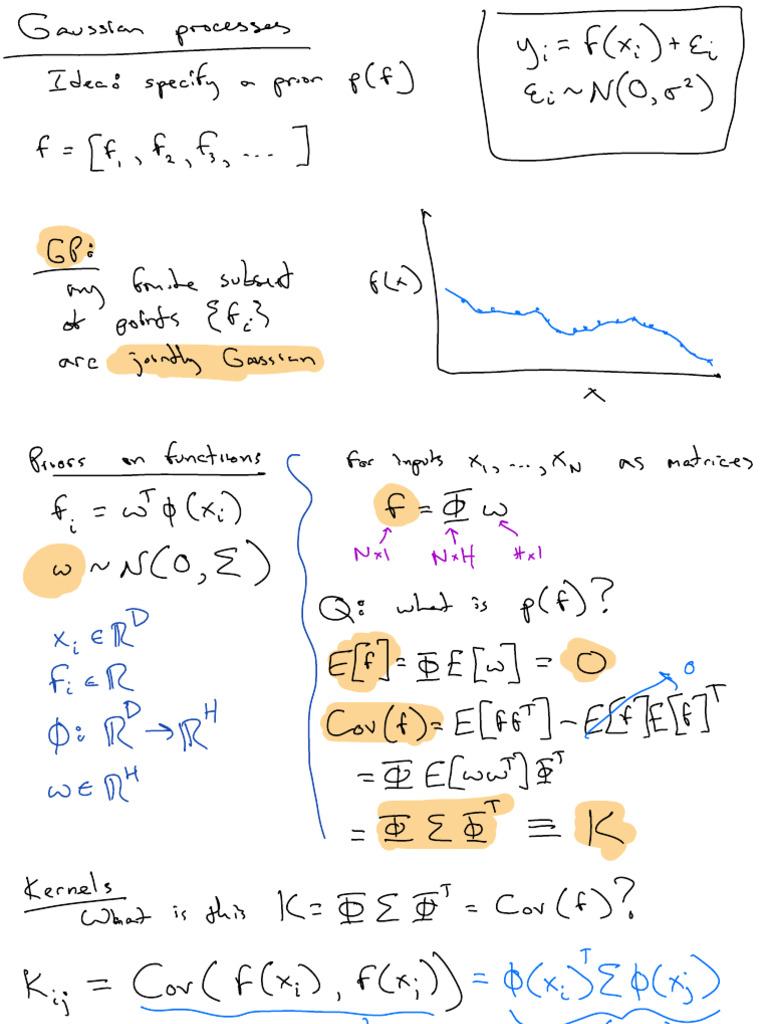 Gaussian processes
Idea: specify a prior p(f)
f = [f₁, f₂, f₃, ... ]
yᵢ = f(xᵢ) + εᵢ
εᵢ ~ N(0, σ²)
GP:
any finite subset
of points {fᵢ}
are jointly Gaussian
f(x)
x
Priors on functions
fᵢ = wᵀφ(xᵢ)
w ~ N(0, Σ)
xᵢ ∈ ℝᴰ
fᵢ ∈ ℝ
φ: ℝᴰ → ℝᴴ
w ∈ ℝᴴ
for inputs x₁, ..., x_N as matrices
f = Φ w
N×1 N×H H×1
Q: what is p(f)?
E[f] = Φ E[w] = 0
Cov(f) = E[ffᵀ] − E[f]E[f]ᵀ 0
= Φ E[wwᵀ] Φᵀ
= Φ Σ Φᵀ ≡ K
Kernels
What is this K = Φ Σ Φᵀ = Cov(f)?
Kᵢⱼ = Cov(f(xᵢ), f(xⱼ)) = φ(xᵢ)ᵀΣφ(xⱼ)